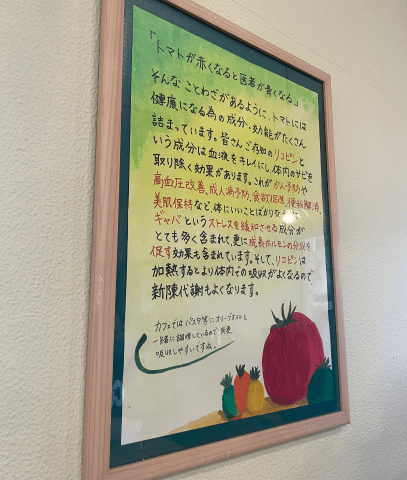 「トマトが赤くなると医者が青くなる。」
そんなことわざがあるように、トマトには
健康になる為の成分、効能がたくさん
詰まっています。皆さんご存知のリコピンと
いう成分は血液をキレイにし、体内のサビを
取り除く効果があります。これががん予防や
高血圧改善、成人病予防、食欲促進、便秘解消、
美肌保持など、体にいいことばかりな
ギャバというストレスを緩和させる成分が
とても多く含まれて、更に成長ホルモンの分泌を
促す効果も含まれています。そして、リコピンは
加熱するとより体内での吸収がよくなるので、
新陳代謝もよくなります。
カフェでは パスタ等にオリーブオイルと
一緒に調理しているので
吸収しやすいですね。